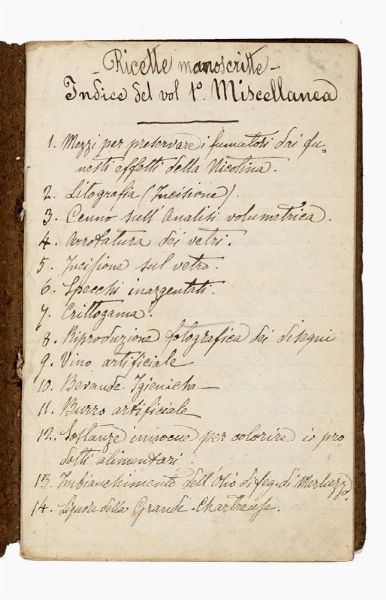 Ricette manoscritte
Indice del vol 1º. Miscellanea
1. Mezzi per preservare i fumatori dai fu-
nesti effetti della Nicotina.
2. Litografia (Incisione).
3. Cenno sull'Analisi volumetrica.
4. Arrotatura dei vetri.
5. Incisione sul vetro.
6. Specchi inargentati.
7. Crittogama.
8. Riproduzione fotografica dei disegni
9. Vino artificiale
10. Bevande Igieniche
11. Burro artificiale
12. Sostanze innocue per colorire i pro-
dotti alimentari.
13. Imbianchimento dell'Olio di feg. di Merluzzo.
14. Liquore della Grande-Chartreuse.